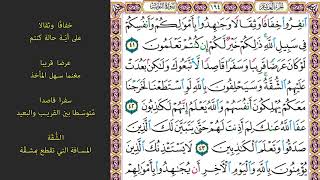 خفافًا وثقالا
على أيّة حالة كنتم
عرضا قريبا
مغنما سهل المأخذ
سفرا قاصدا
متوسّطا بين القريب والبعيد
الشّقّة
المسافة التي تقطع بمشقّة
١٩٤
ٱنفِرُوا۟ خِفَافًا وَثِقَالًا وَجَٰهِدُوا۟ بِأَمْوَٰلِكُمْ وَأَنفُسِكُمْ
فِى سَبِيلِ ٱللَّهِ ذَٰلِكُمْ خَيْرٌ لَّكُمْ إِن كُنتُمْ تَعْلَمُونَ ٤١
لَوْ كَانَ عَرَضًا قَرِيبًا وَسَفَرًا قَاصِدًا لَّٱتَّبَعُوكَ وَلَٰكِنۢ بَعُدَتْ
عَلَيْهِمُ ٱلشُّقَّةُ وَسَيَحْلِفُونَ بِٱللَّهِ لَوِ ٱسْتَطَعْنَا لَخَرَجْنَا
مَعَكُمْ يُهْلِكُونَ أَنفُسَهُمْ وَٱللَّهُ يَعْلَمُ إِنَّهُمْ لَكَٰذِبُونَ ٤٢
عَفَا ٱللَّهُ عَنكَ لِمَ أَذِنتَ لَهُمْ حَتَّىٰ يَتَبَيَّنَ لَكَ ٱلَّذِينَ
صَدَقُوا۟ وَتَعْلَمَ ٱلْكَٰذِبِينَ ٤٣ لَا يَسْتَـْٔذِنُكَ ٱلَّذِينَ
يُؤْمِنُونَ بِٱللَّهِ وَٱلْيَوْمِ ٱلْـَٔاخِرِ أَن يُجَٰهِدُوا۟ بِأَمْوَٰلِهِمْ